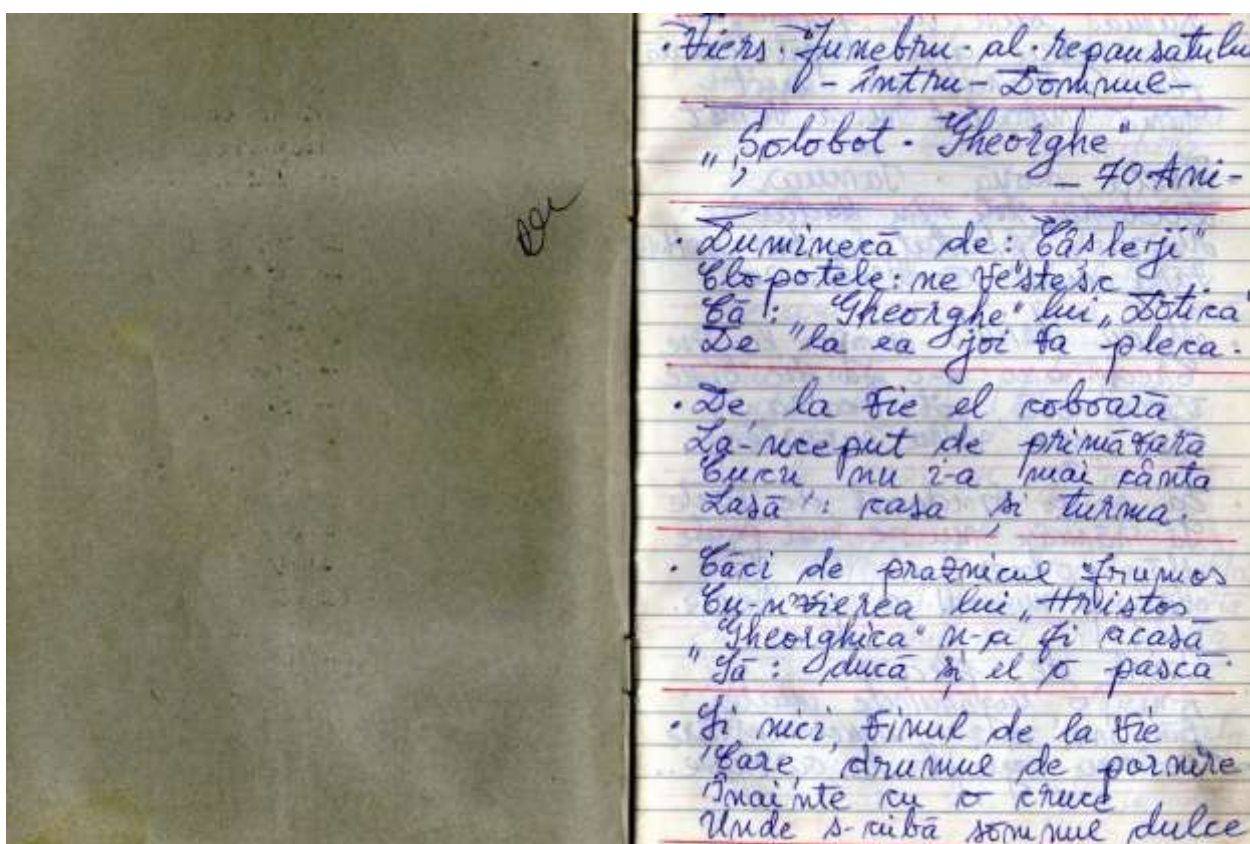 · Viers · Funebru · al · repausatului
- întru - Domnul -
„Solobot - Gheorghe"
- 70 Ani -
· Duminecă de: Câslerji"
Clopotele: ne vestesc
Că: „Gheorghe" lui „Dotica"
De la ea joi va pleca.
· De la vie el coboară
La-nceput de primăvară
Cucu nu i-a mai cânta
Lasă: casa și turma.
· Căci de praznicul frumos
Cu-nvierea lui „Hristos
„Gheorghica" n-a fi acasă
Să: ducă și el o pască.
· Și nici, vinul de la vie
Care, drumul de pornire
Înainte cu o cruce
Unde s-aibă somnul dulce